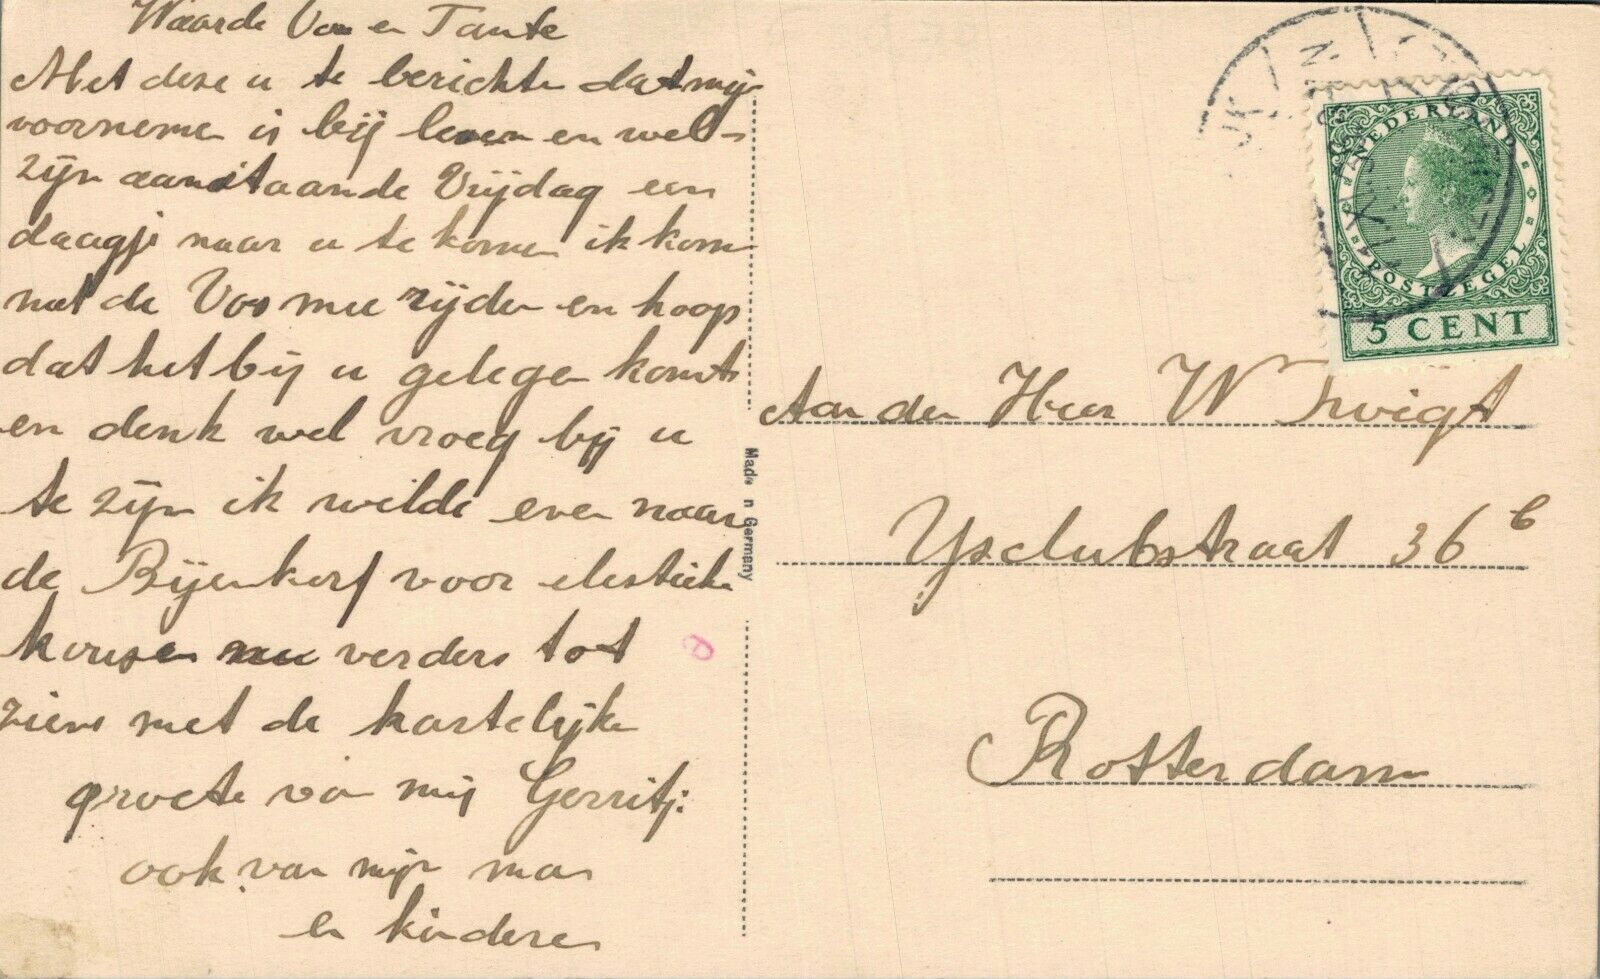 Waarde Oom en Tante
Met deze u te berichten dat mijn
voornemen is bij leven en wel-
zijn aanstaande Vrijdag een
daagje naar u te komen ik kom
met de Vos mee rijden en hoop
dat het bij u gelegen komt
en denk wel vroeg bij u
te zijn ik wilde even naar
de Bijenkorf voor elastieke
kousen verders tot
ziens met de hartelijke
groete van mij Gerritje
ook van mijn man
en kinderen
Made in Germany
NEDERLAND
POSTZEGEL
5 CENT
Aan den Heer W Truigt
Ysclubstraat 36 b
Rotterdam